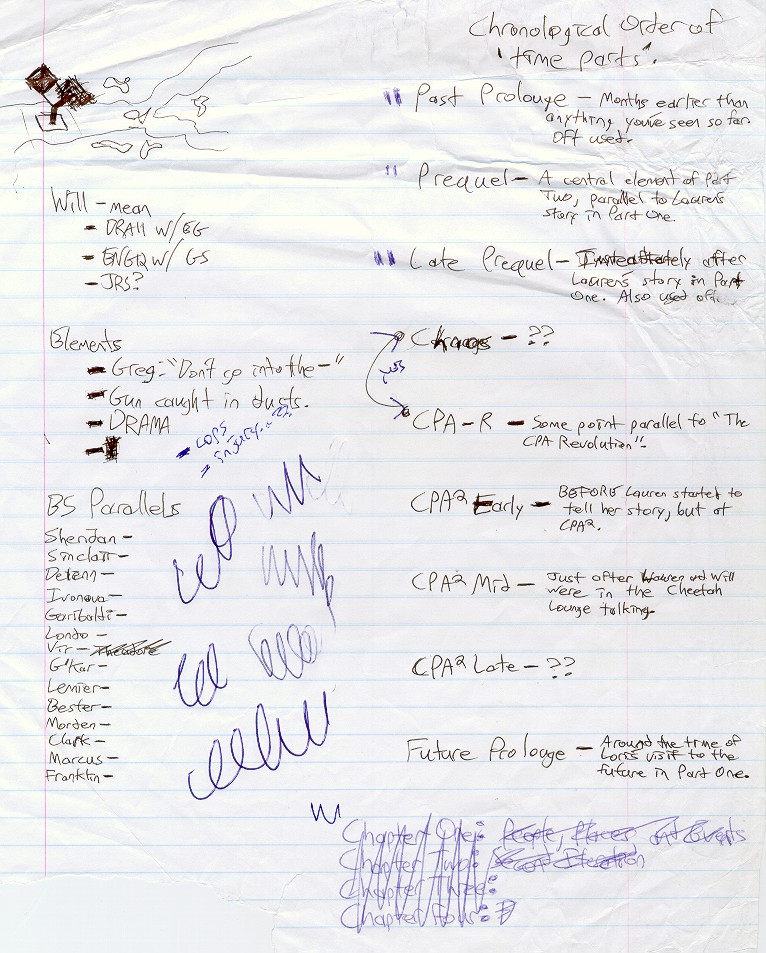 Chronological Order of
"time parts".
" Past Prolouge – Months earlier than
anything you've seen so far.
Oft used.
" Prequel – A central element of Part
Two, parallel to Lauren's
story in Part One.
" Late Prequel – Immediately after
Lauren's story in Part
One. Also used oft.
Will – mean
- DRA11 W/EG
- ENG12 W/ GS
- JRS?
Elements
- Greg: "Don't go into the –"
- Gun caught in ducts.
- DRAMA
- cops
- injury...??
– ??
yes
CPA-R – Some point parallel to "The
CPA Revolution".
BS Parallels
Sheridan –
Sinclair –
Delenn –
Ivonova –
Garibaldi –
Londo –
Vir – Theodore
G'Kar –
Lenier –
Bester –
Morden –
Clark –
Marcus –
Franklin –
CPA² Early – BEFORE Lauren started to
tell her story, but at
CPA².
CPA² Mid – Just after Lauren and Will
were in the Cheetah
Lounge talking.
CPA² Late – ??
Future Prolouge – Around the time of
Lori's visit to the
future in Part One.
Chapter One: People, Places and Events
Chapter Two: Second Iteration
Chapter Three:
Chapter Four: